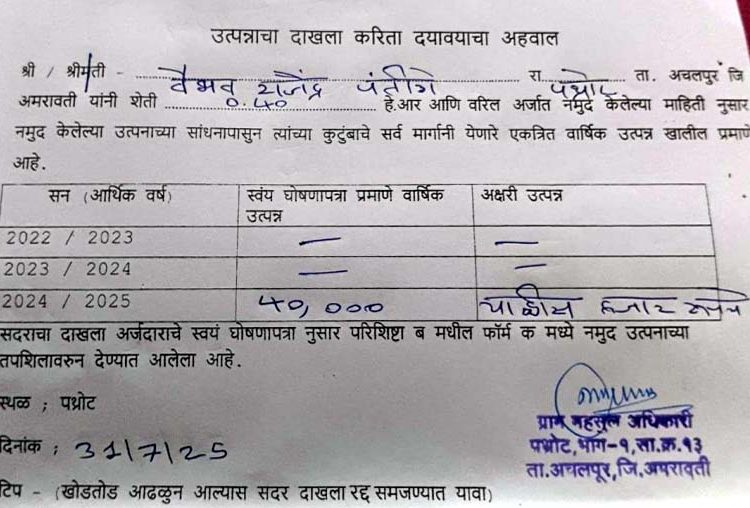 उत्पन्नाचा दाखला करिता दयावयाचा अहवाल
श्री / श्रीमती - वैभव राजेंद्र पंतींगे रा. पथ्रोट ता. अचलपुर जि
अमरावती यांनी शेती 0.40 हे.आर आणि वरिल अर्जात नमुद केलेल्या माहिती नुसार
नमुद केलेल्या उत्पनाच्या साधनापासुन त्यांच्या कुटुंबाचे सर्व मार्गानी येणारे एकत्रित वार्षिक उत्पन्न खालील प्रमाणे
आहे.
सन (आर्थिक वर्ष) स्वंय घोषणापत्रा प्रमाणे वार्षिक उत्पन्न अक्षरी उत्पन्न
2022 / 2023 — —
2023 / 2024 — —
2024 / 2025 40,000 चाळीस हजार रुपये
सदराचा दाखला अर्जदाराचे स्वयं घोषणापत्रा नुसार परिशिष्टा ब मधील फॉर्म क मध्ये नमुद उत्पनाच्या
तपशिलावरुन देण्यात आलेला आहे.
स्थळ ; पथ्रोट
दिनांक ; 31/7/25
ग्राम महसुल अधिकारी
पथ्रोट,भाग-१,सा.क्र.१३
ता.अचलपूर,जि.अमरावती
टिप - (खोडतोड आढळुन आल्यास सदर दाखला रद्द समजण्यात यावा)